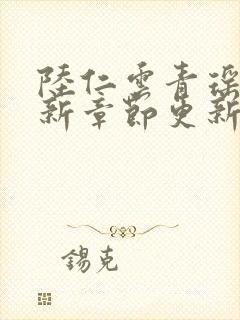 陸仁雲青瑤
新章節更新
錫克